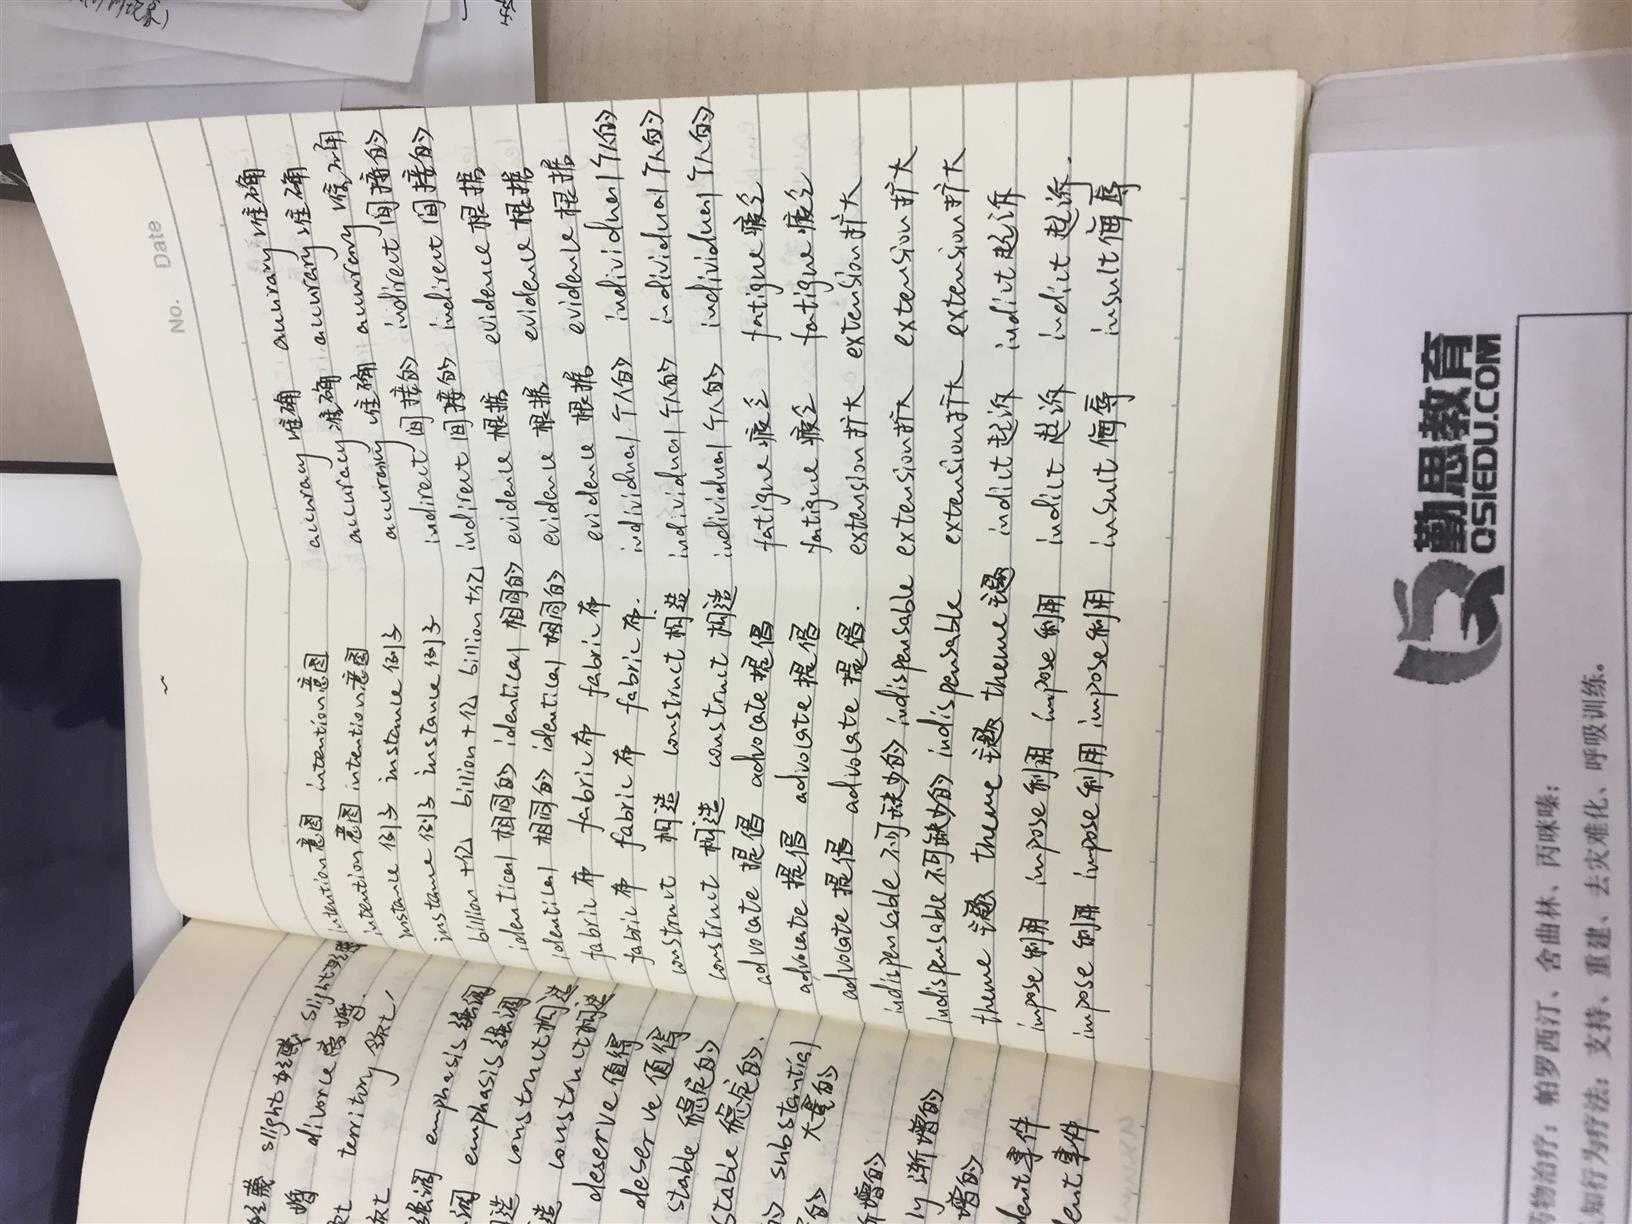 No. Date
intention 意图 intention 意图 accuracy 准确 accuracy 准确
intention 意图 intention 意图 accuracy 准确 accuracy 准确
instance 例子 instance 例子 accuracy 准确 accuracy 准确
instance 例子 instance 例子 indirect 间接的 indirect 间接的
billion 十亿 billion 十亿 billion 十亿 indirect 间接的 indirect 间接的
identical 相同的 identical 相同的 evidence 根据 evidence 根据
identical 相同的 identical 相同的 evidence 根据 evidence 根据
fabric 布 fabric 布 fabric 布 evidence 根据 evidence 根据
fabric 布 fabric 布 fabric 布. individual 个人的 individual 个人的
construct 构造 construct 构造 individual 个人的 individual 个人的
construct 构造 construct 构造 individual 个人的 individual 个人的
advocate 提倡 advocate 提倡 fatigue 疲乏 fatigue 疲乏
advocate 提倡 advocate 提倡 fatigue 疲乏 fatigue 疲乏
advocate 提倡 advocate 提倡. extension 扩大 extension 扩大
indispensable 不可缺少的 indispensable extension 扩大 extension 扩大
indispensable 不可缺少的 indispensable extension 扩大 extension 扩大
theme 主题 theme 主题 theme 主题 indict 起诉 indict 起诉
impose 利用 impose 利用 impose 利用 indict 起诉 indict 起诉.
impose 利用 impose 利用 impose 利用 insult 侮辱 insult 侮辱
slight 轻蔑 slight 轻蔑
婚 divorce 离婚.
territory 领土
强调 emphasis 强调
调 emphasis 强调
造 construct 构造
造 construct 构造
deserve 值得
deserve 值得
stable 稳定的
stable 稳定的.
substantial
大量的
ly 渐增的
增的
dent 事件
dent 事件
勤思教育
QSIEDU.COM
药物治疗：帕罗西汀、舍曲林、丙咪嗪；
知行为疗法：支持、重建、去灾难化、呼吸训练。